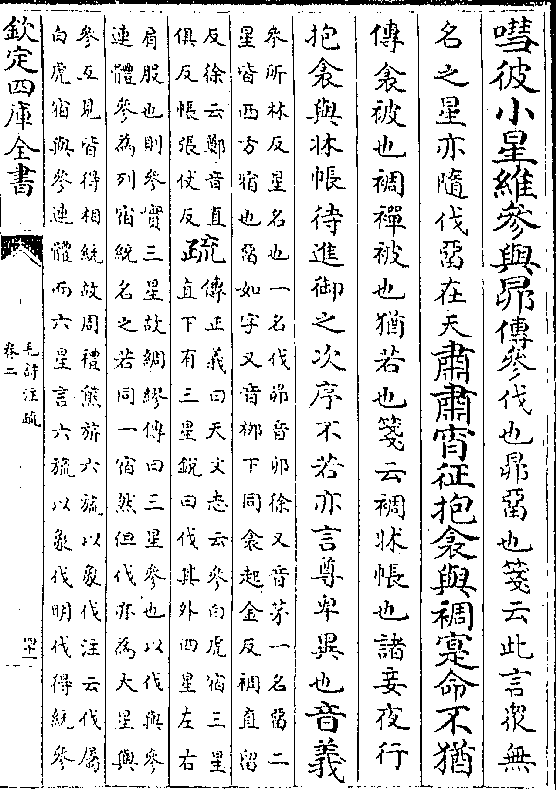 嘒彼小星維參與昴傳參伐也昴畱也箋云此言衆無
名之星亦隨伐畱在天肅肅宵征抱衾與裯寔命不猶
傳衾被也裯禪被也猶若也箋云裯牀帳也諸妾夜行
抱衾與牀帳待進御之次序不若亦言尊卑異也音義
參所林反星名也一名伐昴音卯徐又音茅一名畱二
星皆西方宿也畱如字又音栁下同衾起金反裯直留
反徐云鄭音直
俱反帳張仗反
疏
傳正義曰天文志云參白虎宿三星
直下有三星鋭曰伐其外四星左右
肩股也則參實三星故綢繆傳曰三星參也以伐與參
連體參為列宿統名之若同一宿然但伐亦為大星與
參互見皆得相統故周禮熊旂六旒以象伐注云伐屬
白虎宿與參連體而六星言六旒以象伐明伐得統參
欽定四庫全書
毛詩注疏
卷二